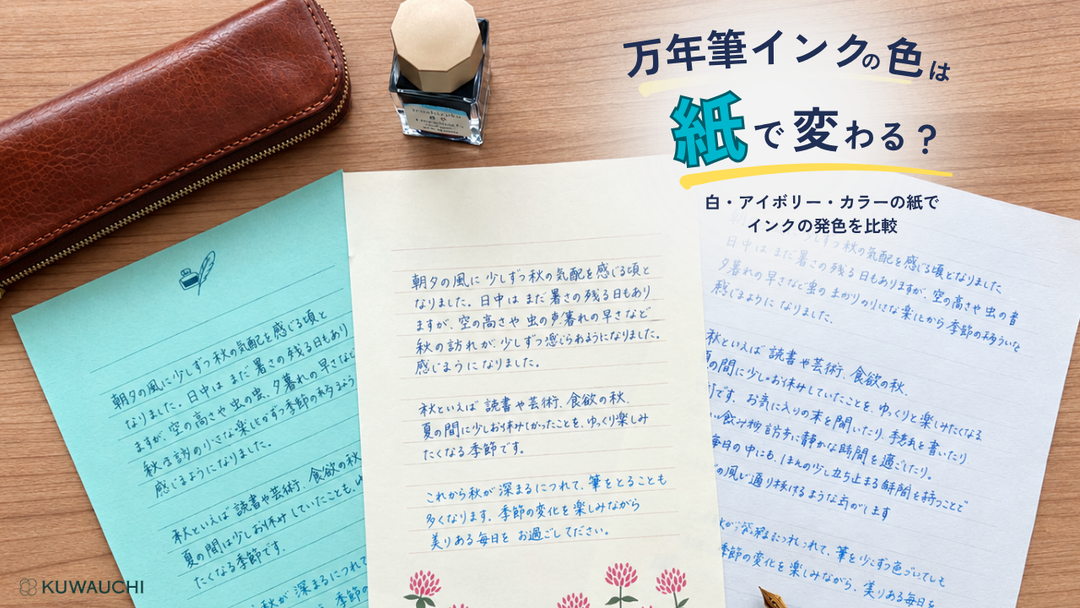 万年筆インクの色は
紙で変わる？
白・アイボリー・カラーの紙で
インクの発色を比較
朝夕の風に少しずつ秋の気配を感じる頃と
なりました。日中はまだ暑さの残る日もあり
ますが、空の高さや虫の虫、夕暮れの早さなど
秋を訪の小さな
感じるようになりました。
秋といえば 読書や芸術、食欲の秋
夏の間は少しお休みしていたことも、ゆ
たくなる季節です。
秋が深まるにつれて
朝夕の風に少しずつ秋の気配を感じる頃と
なりました。日中はまだ暑さの残る日もあり
ますが、空の高さや虫の声暮れの早さなど
秋の訪れが、少しずつ
感じようになりました。
秋といえば 読書や芸術、食欲の秋、
夏の間に少しお休みしかったことを、ゆっくり楽しみ
たくなる季節です。
これから秋が深まるにつれて、筆をとることも
多くなります。季節の変化を楽しみながら
美りある毎日を お過ごしてださい。
少しずつ秋の気配を感じる頃となりました
日中はまだ暑さの残る日もありますが、空の高さや虫の音
夕暮れの早さなど虫の
感じまように なりました。
秋といえば 読書や芸術、食欲の秋、
夏の間に少しお休みしていたことを、ゆっくりと楽しみたくなる
です。お気に入りの本を開いたり、手紙を書いたり
飲み物
静かな時間を過ごしたり。
毎日の中にも、ほんの少し立ち止まる時間を持つことで
の風が通り抜けるような
つれて、筆を
季節の変化を楽しみながら、美りある毎日を
KUWAUCHI